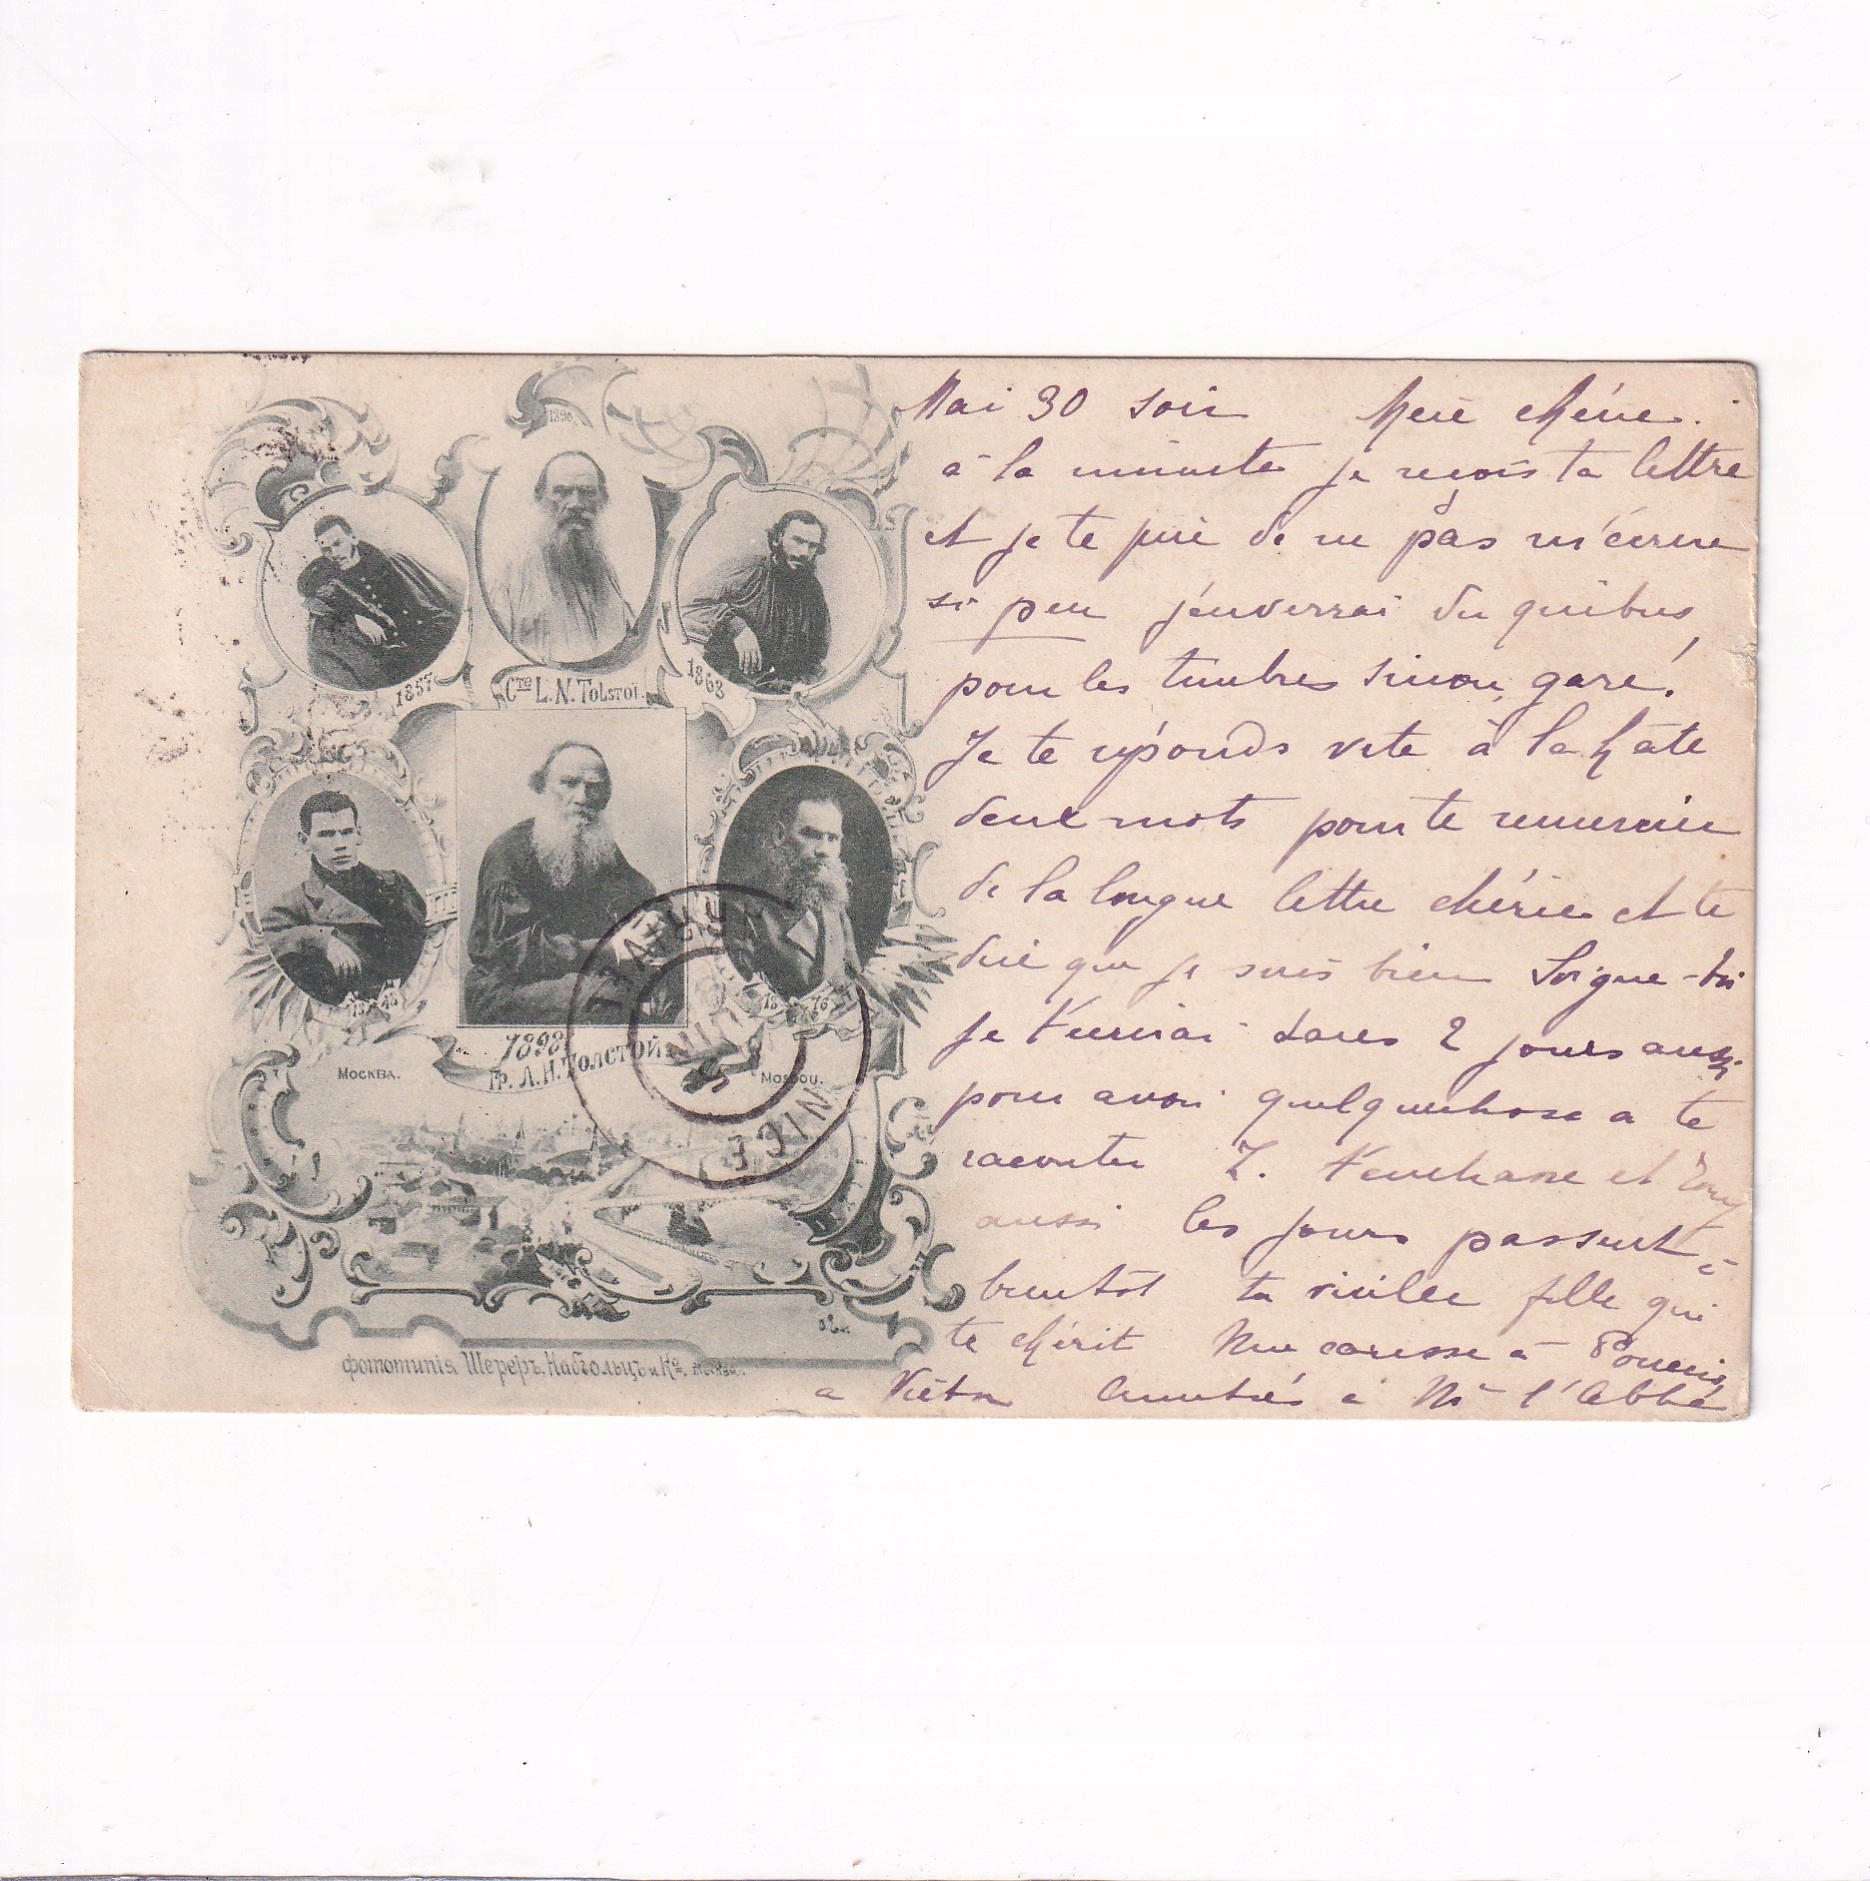 1896
1857
Cte L. N. Tolstoï.
1868
1848
1876
1898
Гр. Л. Н. Толстой
Москва.
Moscou.
NICE
5 JUIN
Фототипія Шереръ, Набгольцъ и Ко. Москва.
Mai 30 soir Mère chérie.
à la minute je reçois ta lettre
et je te prie de ne pas m'écrire
si peu j'enverrai du quibus
pour les timbres sinon, gare!
Je te réponds vite à la hâte
deux mots pour te remercier
de la longue lettre chérie et te
dire que je suis bien Soigne-toi
je t'écrirai dans 2 jours aussi
pour avoir quelquechose a te
raconter Z. t'embrasse et
aussi les jours passent à
bientôt ta vieille fille qui
te chérit Une caresse à
a Amitiés à Mr l'Abbé